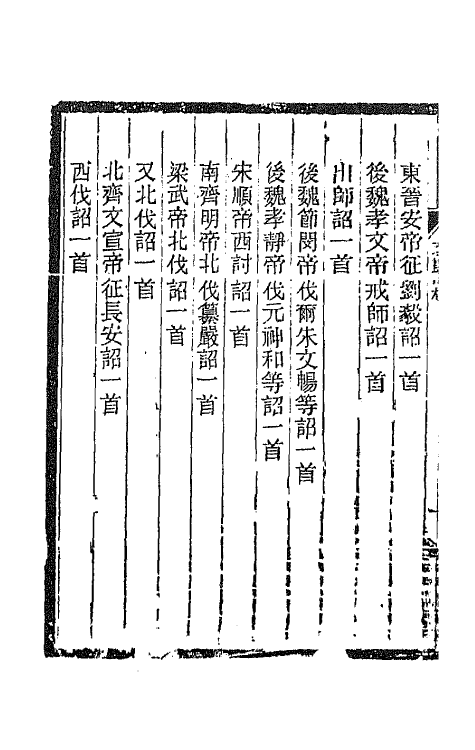 東晉安帝征劉毅詔一首
後魏孝文帝戒師詔一首
出師詔一首
後魏節閔帝伐爾朱文暢等詔一首
後魏孝靜帝伐元神和等詔一首
宋順帝西討詔一首
南齊明帝北伐纂嚴詔一首
梁武帝北伐詔一首
又北伐詔一首
北齊文宣帝征長安詔一首
西伐詔一首